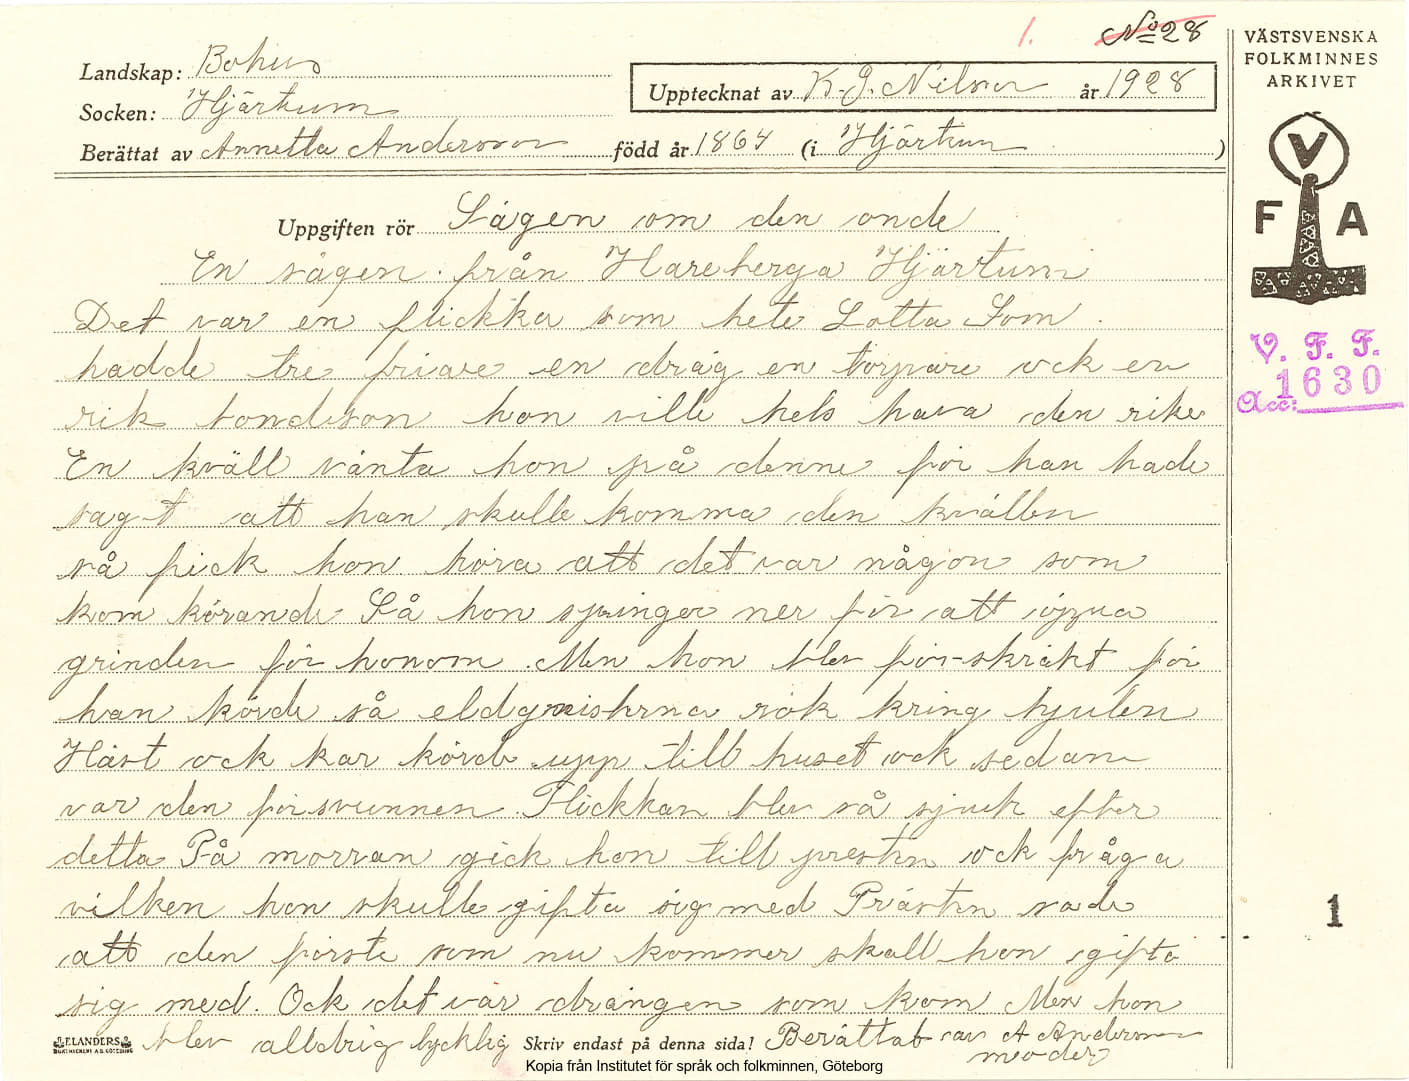 1. No 28
VÄSTSVENSKA
FOLKMINNES
ARKIVET
Landskap: Bohus
Upptecknat av K. G. Nilson år 1928
Socken: Hjärtum
Berättat av Annetta Anderson född år 1864 (i Hjärtum)
V
F A
Uppgiften rör Sägen om den onde
En sägen från Hareberga Hjärtum
Det var en flickka som hete Lotta Som
hadde tre friare en dräg en torpare ock en
rik bondson hon ville hels hava den rike
En kväll vänta hon på denne för han hade
sagt att han skulle komma den kvällen
så fick hon höra att det var någon som
kom körande Så hon springer ner för att öppna
grinden för honom. Men hon blev för-skräkt för
han körde så eldgnisterna rök kring hjulen
Häst ock kar körde upp till huset ock sedan
var den försvunnen. Flickkan blev så sjuk efter
detta På morran gick hon till presten ock fråga
vilken hon skulle gifta sig med Prästen sade
att den förste som nu kommer skall hon gifta
sig med. Ock det var drängen som kom Men hon
blev alldrig lycklig Skriv endast på denna sida! Berättat av A Anderson
moder
V. F. F.
Acc: 1630
1
ELANDERS
BOKTRYCKERI A.B. GÖTEBORG
Kopia från Institutet för språk och folkminnen, Göteborg